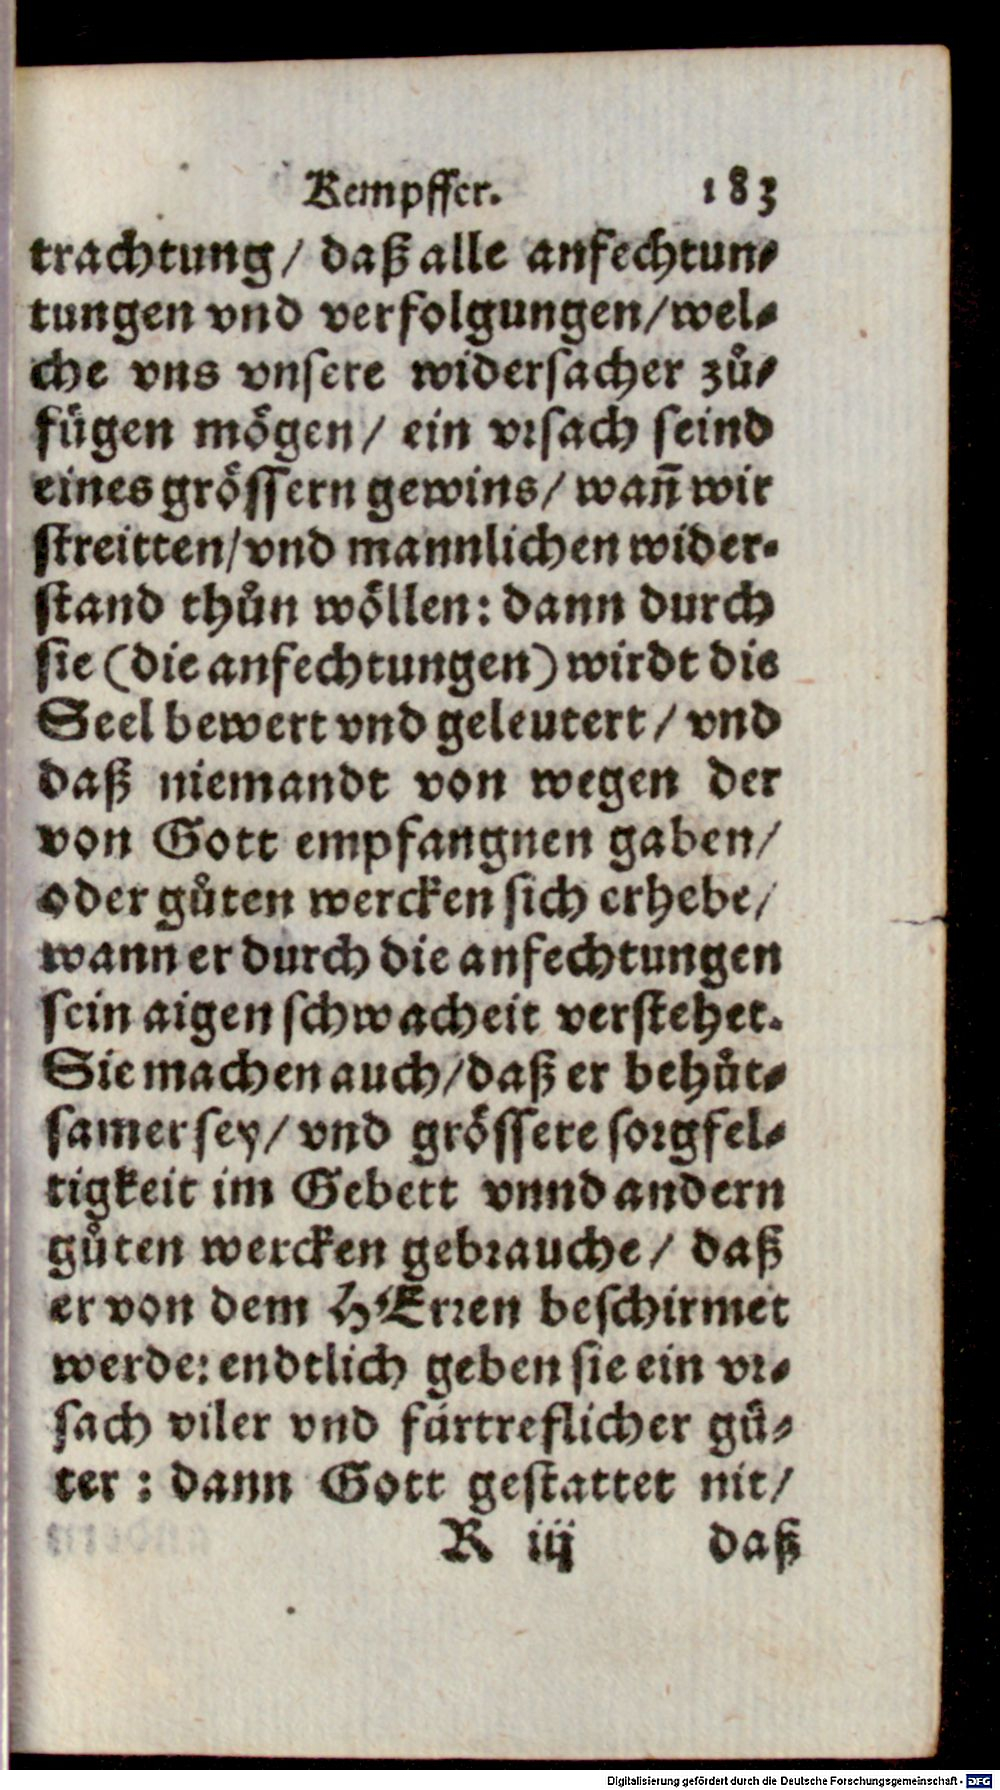 Kempffer. 183
trachtung/ daß alle anfechtun-
tungen vnd verfolgungen/wel-
che vns vnsere widersacher zů-
fügen mögen/ ein vrsach seind
eines grössern gewins/ wañ wir
streitten/vnd mannlichen wider-
stand thůn wöllen: dann durch
sie (die anfechtungen) wirdt die
Seel bewert vnd geleutert/ vnd
daß niemandt von wegen der
von Gott empfangnen gaben/
oder gůten wercken sich erhebe/
wann er durch die anfechtungen
sein aigen schwacheit verstehet.
Sie machen auch/daß er behůt-
samer sey/ vnd grössere sorgfel-
tigkeit im Gebett vnnd andern
gůten wercken gebrauche/ daß
er von dem HErren beschirmet
werde: endtlich geben sie ein vr-
sach viler vnd fürtreflicher gü-
ter: dann Gott gestattet nit/
R iij daß
Digitalisierung gefördert durch die Deutsche Forschungsgemeinschaft - DFG